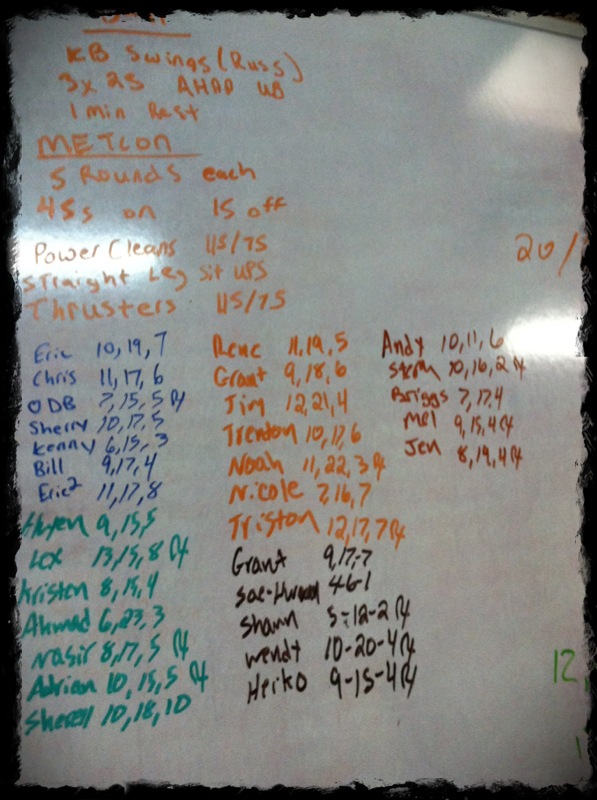 KB Swings (Russ)
3x25 AHAP UB
1 min Rest
METCON
5 Rounds each
45s on 15 off
Power Cleans 115/75
Straight Leg Sit ups
Thrusters 115/75
20/
Eric 10, 19, 7
Chris 11, 17, 6
DB 7, 15, 5 Rx
Sherry 10, 17, 5
Kenny 6, 15, 3
Bill 9, 17, 4
Eric² 11, 17, 8
9, 15, 5
Lex 13, 15, 8 Rx
Kristen 8, 15, 4
Ahmad 6, 23, 3
Nasir 8, 17, 5 Rx
Adrian 10, 15, 5 Rx
10, 18, 10
Rene 11, 19, 5
Grant 9, 18, 6
Jim 12, 21, 4
Trenton 10, 17, 6
Noah 11, 22, 3 Rx
Nicole 7, 16, 7
Triston 12, 17, 7 Rx
Grant 9, 17, 7
4-6-1
Shawn 5-12-2 Rx
Wendt 10-20-4 Rx
Heiko 9-15-4 Rx
Andy 10, 11, 6
10, 16, 2 Rx
Briggs 7, 17, 4
Mel 9, 15, 4 Rx
Jen 8, 19, 4 Rx
12,